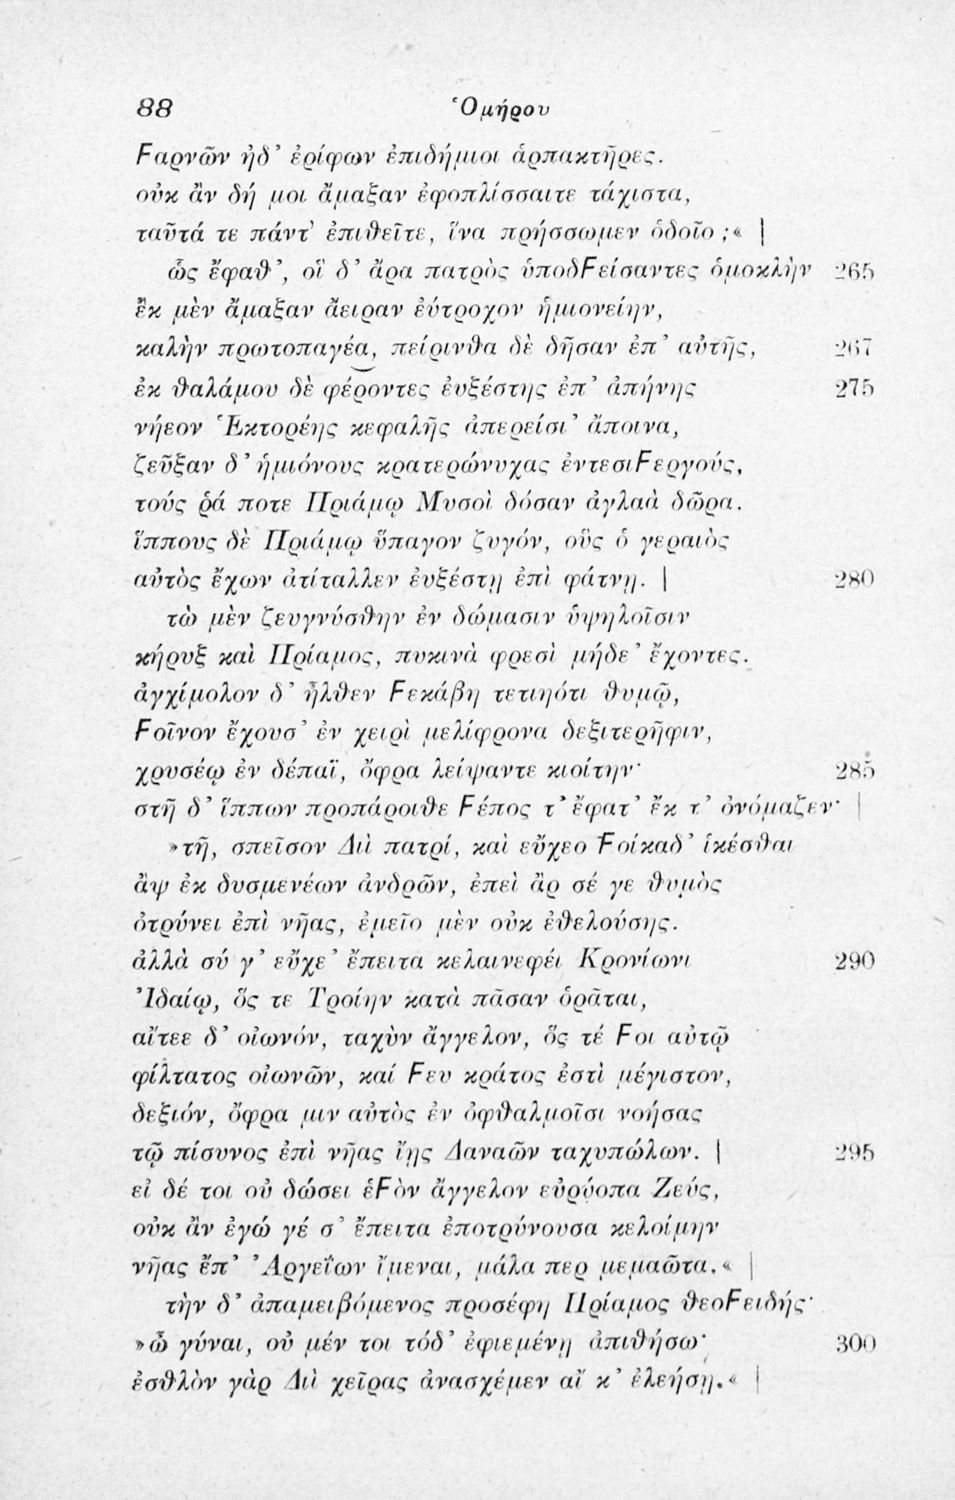 88 Ὁμήρου
Ϝαρνῶν ἠδ’ ἐρίφων ἐπιδήμιοι ἁρπακτῆρες.
οὐκ ἂν δή μοι ἄμαξαν ἐφοπλίσσαιτε τάχιστα,
ταῦτά τε πάντ’ ἐπιθεῖτε, ἵνα πρήσσωμεν ὁδοῖο;« |
ὣς ἔφαθ’, οἳ δ’ ἄρα πατρὸς ὑποδϜείσαντες ὁμοκλὴν 265
ἒκ μὲν ἄμαξαν ἄειραν ἐύτροχον ἡμιονείην,
καλὴν πρωτοπαγέα, πείρινθα δὲ δῆσαν ἐπ’ αὐτῆς, 267
ἐκ θαλάμου δὲ φέροντες ἐυξέστης ἐπ’ ἀπήνης 275
νήεον Ἑκτορέης κεφαλῆς ἀπερείσι’ ἄποινα,
ζεῦξαν δ’ ἡμιόνους κρατερώνυχας ἐντεσιϜεργούς,
τούς ῥά ποτε Πριάμῳ Μυσοὶ δόσαν ἀγλαὰ δῶρα.
ἵππους δὲ Πριάμῳ ὕπαγον ζυγόν, οὓς ὁ γεραιὸς
αὐτὸς ἔχων ἀτίταλλεν ἐυξέστῃ ἐπὶ φάτνῃ. | 280
τὼ μὲν ζευγνύσθην ἐν δώμασιν ὑψηλοῖσιν
κήρυξ καὶ Πρίαμος, πυκινὰ φρεσὶ μήδε’ ἔχοντες.
ἀγχίμολον δ’ ἦλθεν Ϝεκάβη τετιηότι θυμῷ,
Ϝοῖνον ἔχουσ’ ἐν χειρὶ μελίφρονα δεξιτερῆφιν,
χρυσέῳ ἐν δέπαϊ, ὄφρα λείψαντε κιοίτην· 285
στῆ δ’ ἵππων προπάροιθε Ϝέπος τ’ ἔφατ’ ἔκ τ’ ὀνόμαζεν· |
»τῆ, σπεῖσον Διὶ πατρί, καὶ εὔχεο Ϝοίκαδ’ ἱκέσθαι
ἂψ ἐκ δυσμενέων ἀνδρῶν, ἐπεὶ ἂρ σέ γε θυμὸς
ὀτρύνει ἐπὶ νῆας, ἐμεῖο μὲν οὐκ ἐθελούσης.
ἀλλὰ σύ γ’ εὔχε’ ἔπειτα κελαινεφέι Κρονίωνι 290
Ἰδαίῳ, ὅς τε Τροίην κατὰ πᾶσαν ὁρᾶται,
αἴτεε δ’ οἰωνόν, ταχὺν ἄγγελον, ὅς τέ Ϝοι αὐτῷ
φίλτατος οἰωνῶν, καί Ϝευ κράτος ἐστὶ μέγιστον,
δεξιόν, ὄφρα μιν αὐτὸς ἐν ὀφθαλμοῖσι νοήσας
τῷ πίσυνος ἐπὶ νῆας ἴῃς Δαναῶν ταχυπώλων. | 295
εἰ δέ τοι οὐ δώσει ἑϜὸν ἄγγελον εὐρύοπα Ζεύς,
οὐκ ἂν ἐγώ γέ σ’ ἔπειτα ἐποτρύνουσα κελοίμην
νῆας ἔπ’ Ἀργεΐων ἴμεναι, μάλα περ μεμαῶτα.« |
τὴν δ’ ἀπαμειβόμενος προσέφη Πρίαμος θεοϜειδής·
»ὦ γύναι, οὐ μέν τοι τόδ’ ἐφιεμένῃ ἀπιθήσω· 300
ἐσθλὸν γὰρ Διὶ χεῖρας ἀνασχέμεν αἴ κ’ ἐλεήσῃ.« |